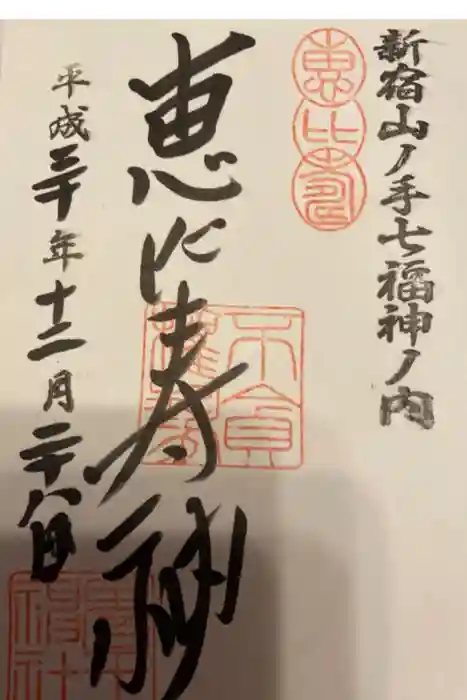 新宿山ノ手七福神ノ内
恵比寿
恵比寿神
平成三十年十二月二十八日